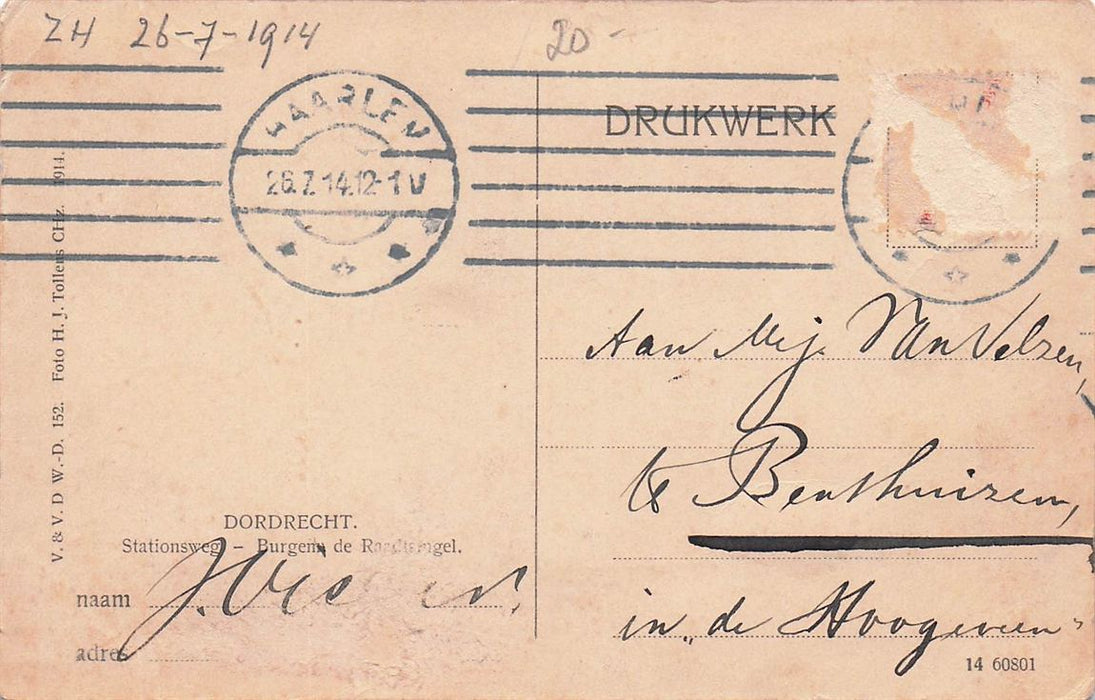 ZH 26-7-1914 20-
HAARLEM
26.7.14.12-1 V
DRUKWERK
V. & V. D W.-D. 152. Foto H. J. Tollens CHz. 1914.
Aan Mej. Van Velzen,
te Benthuizen,
in „de Hoogeveen"
DORDRECHT.
Stationsweg – Burgem de Raadtsingel.
naam J. Vis
adres
14 60801